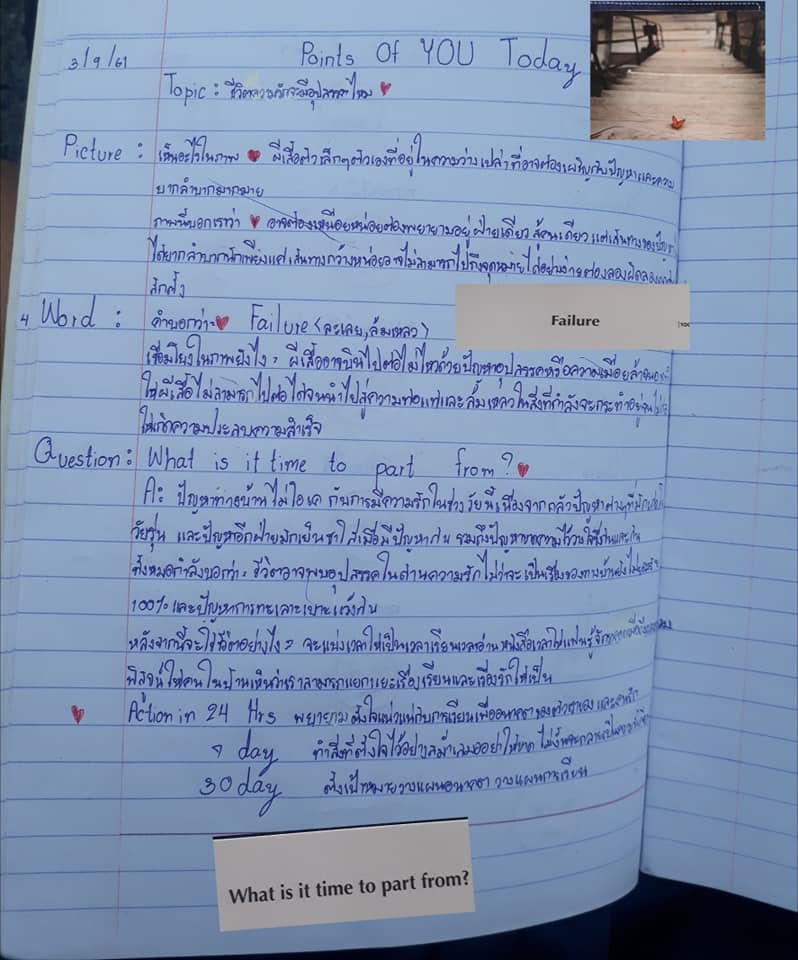 3/9/61
Points Of YOU Today
Topic : ชีวิตความรักจะมีอุปสรรคไหม
Picture : เห็นอะไรในภาพ ผีเสื้อตัวเล็กๆตัวเองที่อยู่ในความว่างเปล่าที่อาจต้องเผชิญกับปัญหาและความ
ยากลำบากมากมาย
ภาพนี้บอกเราว่า อาจต้องเหนื่อยหน่อยต้องพยายามอยู่ฝ่ายเดียว สู้คนเดียว แต่เส้นทางของ
ได้ยากลำบากนักเพียงแค่เส้นทางกว้างหน่อยอาจไม่สามารถไปถึงจุดหมายได้อย่างง่ายต้องลองผิดลอง
สักครั้ง
Word : คำบอกว่า= Failure (ละเลย,ล้มเหลว)
Failure
เชื่อมโยงในภาพยังไง= ผีเสื้ออาจบินไปต่อไม่ไหวด้วยปัญหาอุปสรรคหรือความเมื่อยล้า
ให้ผีเสื้อไม่สามารถไปต่อได้จนนำไปสู่ความท้อแท้และล้มเหลวในสิ่งที่กำลังจะกระทำอยู่จน
ให้เกิดความประสบความสำเร็จ
Question : What is it time to part from?
A: ปัญหาทางบ้านไม่โอเค กับการมีความรักในช่วงวัยนี้เนื่องจากกลัวปัญหาต่างๆที่มัก
วัยรุ่น และปัญหาอีกฝ่ายมักเย็นชาใส่เมื่อมีปัญหากัน รวมถึงปัญหาขาดความไว้วางใจซึ่งกันและกัน
ทั้งหมดกำลังบอกว่า= ชีวิตอาจพบอุปสรรคในด้านความรักไม่ว่าจะเป็นเรื่องของทางบ้านยังไม่
100% และปัญหาการทะเลาะเบาะแว้งกัน
หลังจากนี้จะใช้ชีวิตอย่างไร= จะแบ่งเวลาให้เป็นเวลาเรียนเวลาอ่านหนังสือเวลาให้แฟนรู้จัก
พิสูจน์ให้คนในบ้านเห็นว่าเราสามารถแยกแยะเรื่องเรียนและเรื่องรักให้เป็น
Action in 24 Hrs พยายามตั้งใจแน่วแน่กับการเรียนเพื่ออนาคตของตัวเราเอง และ
7 day ทำสิ่งที่ตั้งใจไว้อย่างสม่ำเสมออย่าให้ขาด
30 day ตั้งเป้าหมายวางแผนอนาคต วางแผนการเรียน
What is it time to part from?